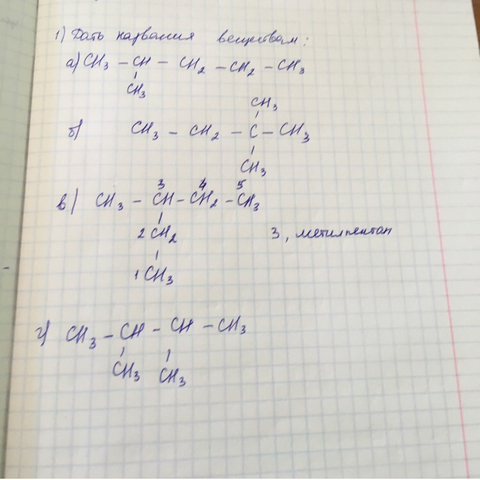 1) Дать названия веществам:
а) CH3 – CH – CH2 – CH2 – CH3
CH3
CH3
б) CH3 – CH2 – C – CH3
CH3
3 4 5
в) CH3 – CH – CH2 – CH3
2 CH2
3, метилпентан
1 CH3
г) CH3 – CH – CH – CH3
CH3 CH3